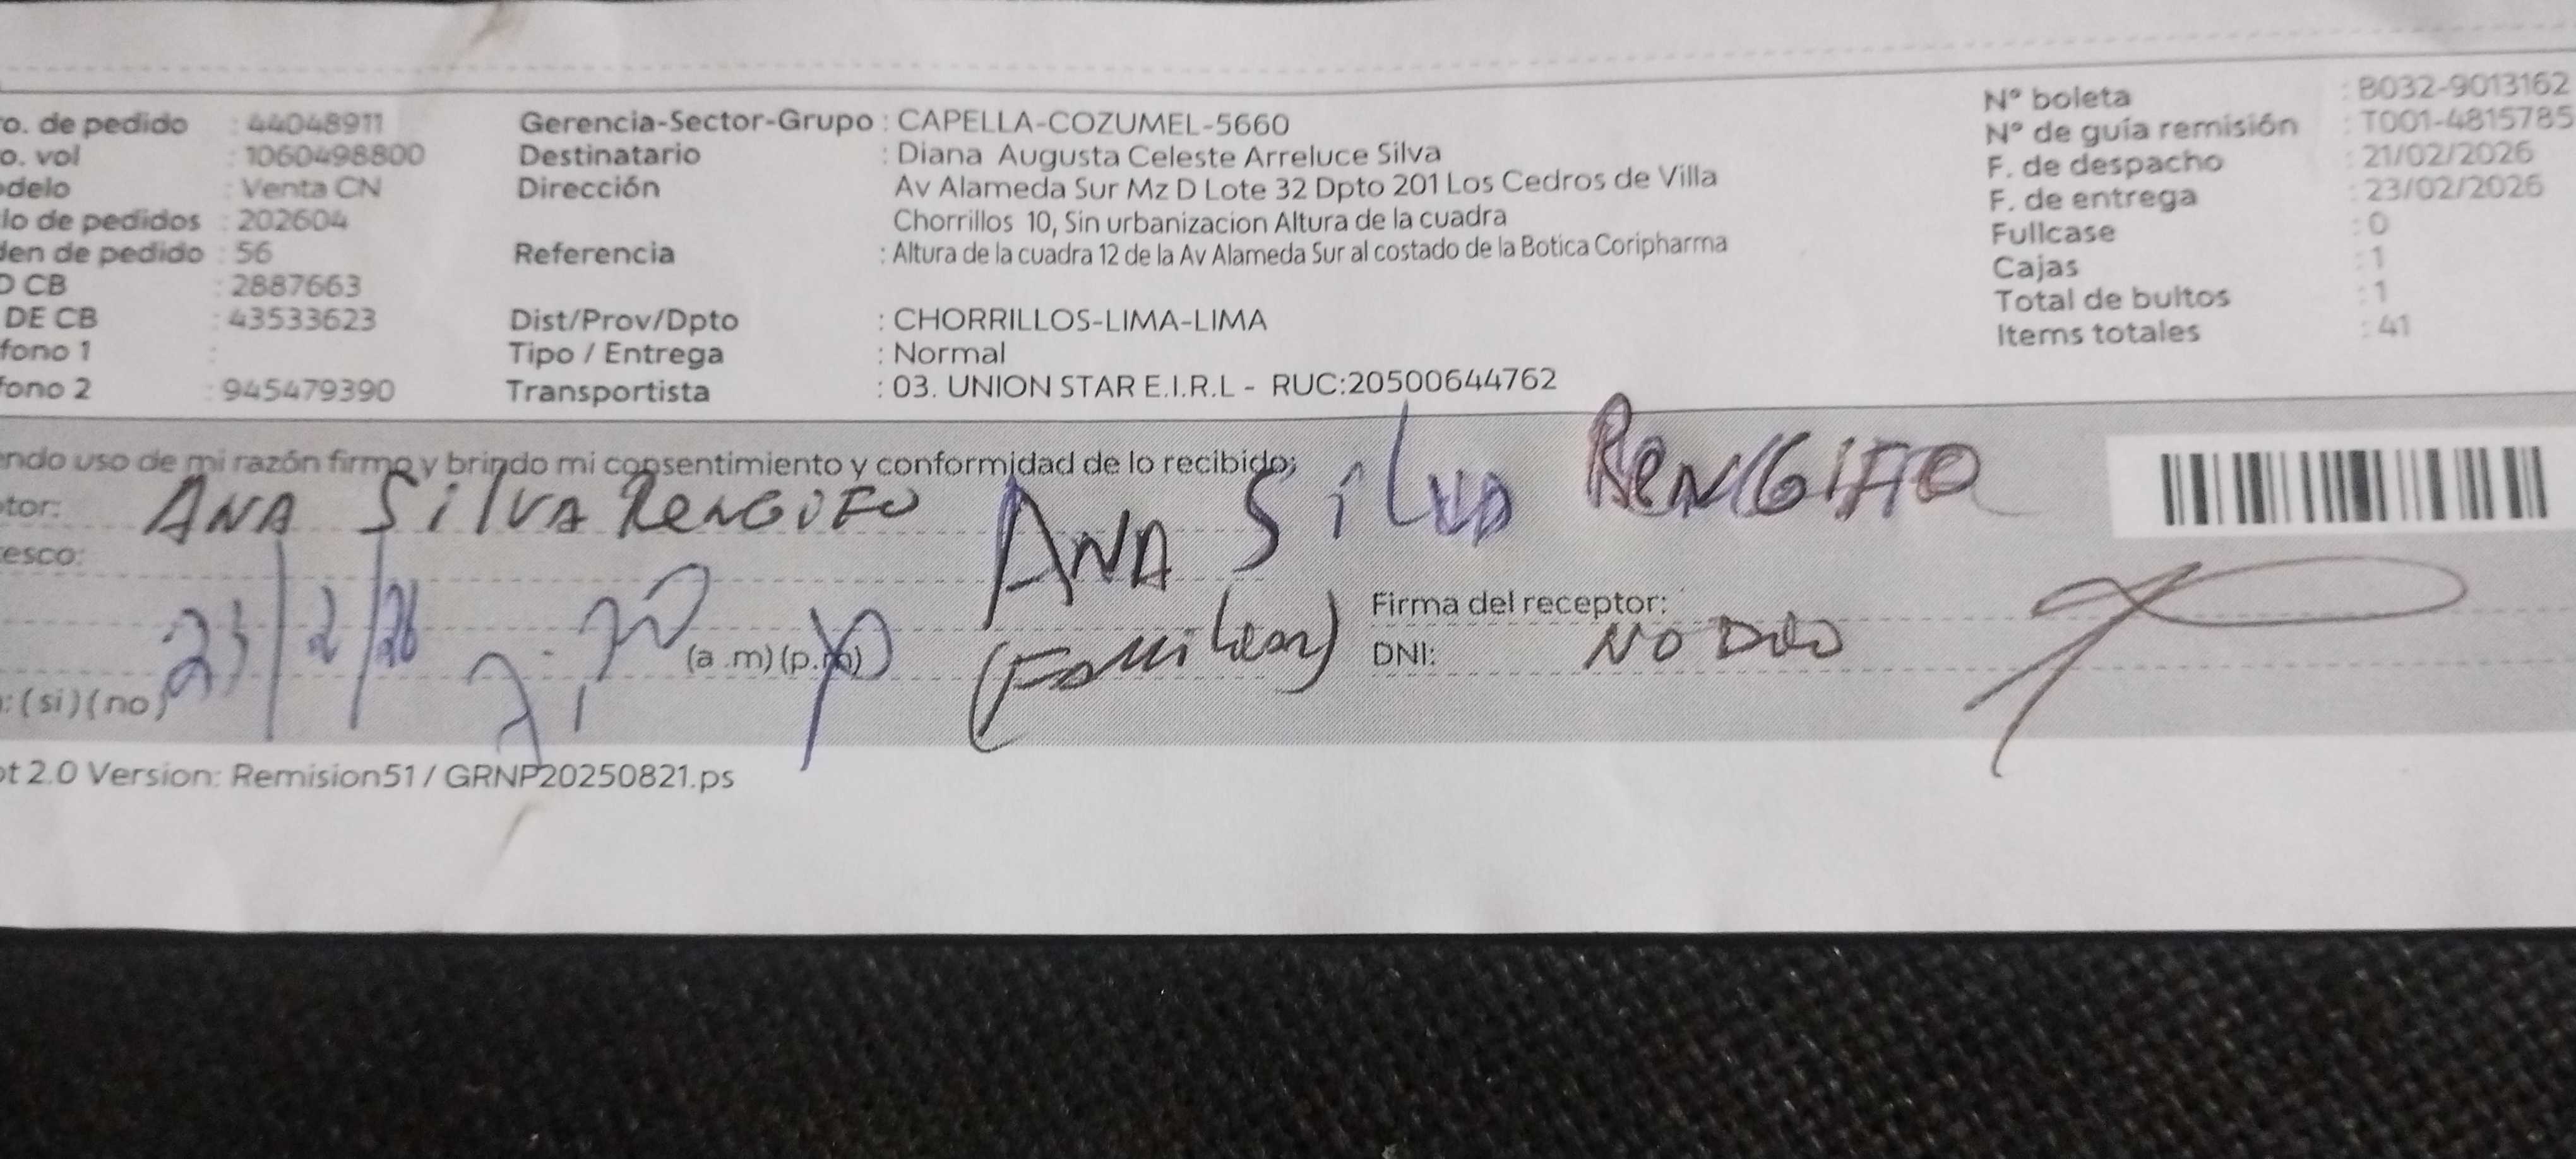 o. de pedido : 44048911
o. vol : 1060498800
delo : Venta CN
lo de pedidos : 202604
den de pedido : 56
O CB : 2887663
DE CB : 43533623
fono 1 :
fono 2 : 945479390
Gerencia-Sector-Grupo : CAPELLA-COZUMEL-5660
Destinatario : Diana Augusta Celeste Arreluce Silva
Dirección Av Alameda Sur Mz D Lote 32 Dpto 201 Los Cedros de Villa
Chorrillos 10, Sin urbanizacion Altura de la cuadra
Referencia : Altura de la cuadra 12 de la Av Alameda Sur al costado de la Botica Coripharma
Dist/Prov/Dpto : CHORRILLOS-LIMA-LIMA
Tipo / Entrega : Normal
Transportista : 03. UNION STAR E.I.R.L - RUC:20500644762
N° boleta : B032-9013162
N° de guía remisión : T001-4815785
F. de despacho : 21/02/2026
F. de entrega : 23/02/2026
Fullcase : 0
Cajas : 1
Total de bultos : 1
Items totales : 41
ndo uso de mi razón firmo y brindo mi consentimiento y conformidad de lo recibido;
tor: ANA SilVA RENGIFO
ANA Silva RENGIFO
esco:
23/2/26
(a .m) (p.m)
(Familiar)
Firma del receptor:
DNI: NO DIO
: (si) (no)
ot 2.0 Version: Remision51 / GRNP20250821.ps